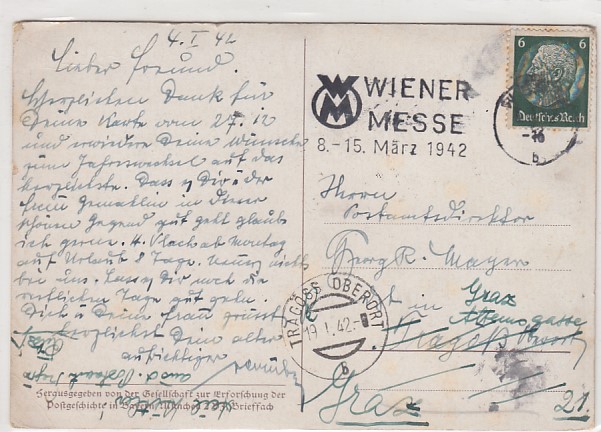 4. I 42
Lieber Freund.
Herzlichen Dank für
Deine Karte vom 27. 12
und erwiedere Deine Wünsche
zum Jahreswechsel auf das
herzlichste. Dass es Dir u der
frau Gemahlin in dieser
schönen Gegend gut geht glaub
ich gerne. H. Vlach ab Montag
auf Urlaub 8 Tage. nichts
bei uns. Lass es Dir noch die
restlichen Tage gut gehn.
Dich u Deine frau grüsst
herzlichst Dein alter
aufrichtiger
Herausgegeben von der Gesellschaft zur Erforschung der
Postgeschichte in Bayern, München 2 BS, Brieffach
WM WIENER
MESSE
8.-15. März 1942
6 6
Deutsches Reich
-16
b
Herrn
Postamtsdirektor
Georg R. Mayer
in Graz
Attemsgasse
Tragöß Oberort
Graz 21.
TRAGÖSS (OBERORT)
19.I.42.
b